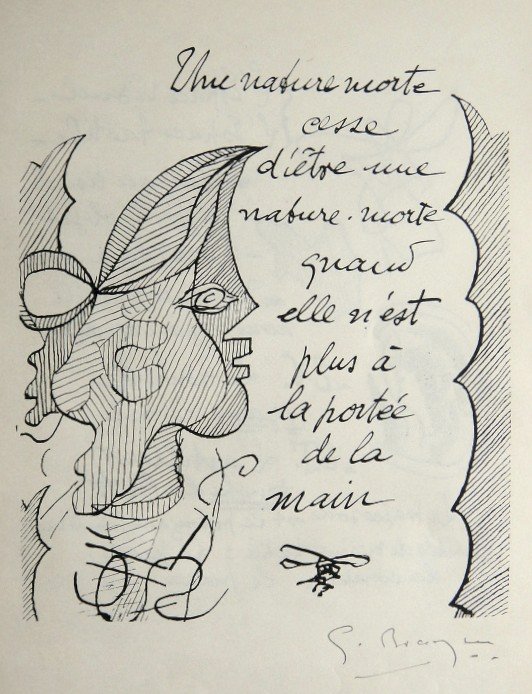 Une nature morte
cesse
d'être une
nature-morte
quand
elle n'est
plus à
la portée
de la
main
G. Braque